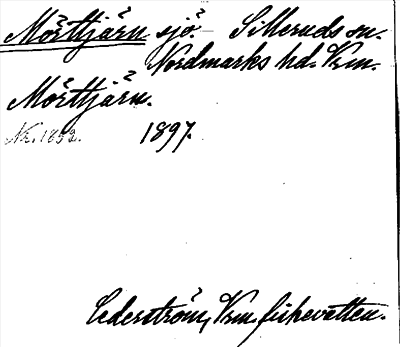 Mörttjärn sjö. Silleruds sn.
Nordmarks hd. Vrm.
Mörttjärn.
Nr. 1852. 1897.
Cederström, Vrm fiskevatten.